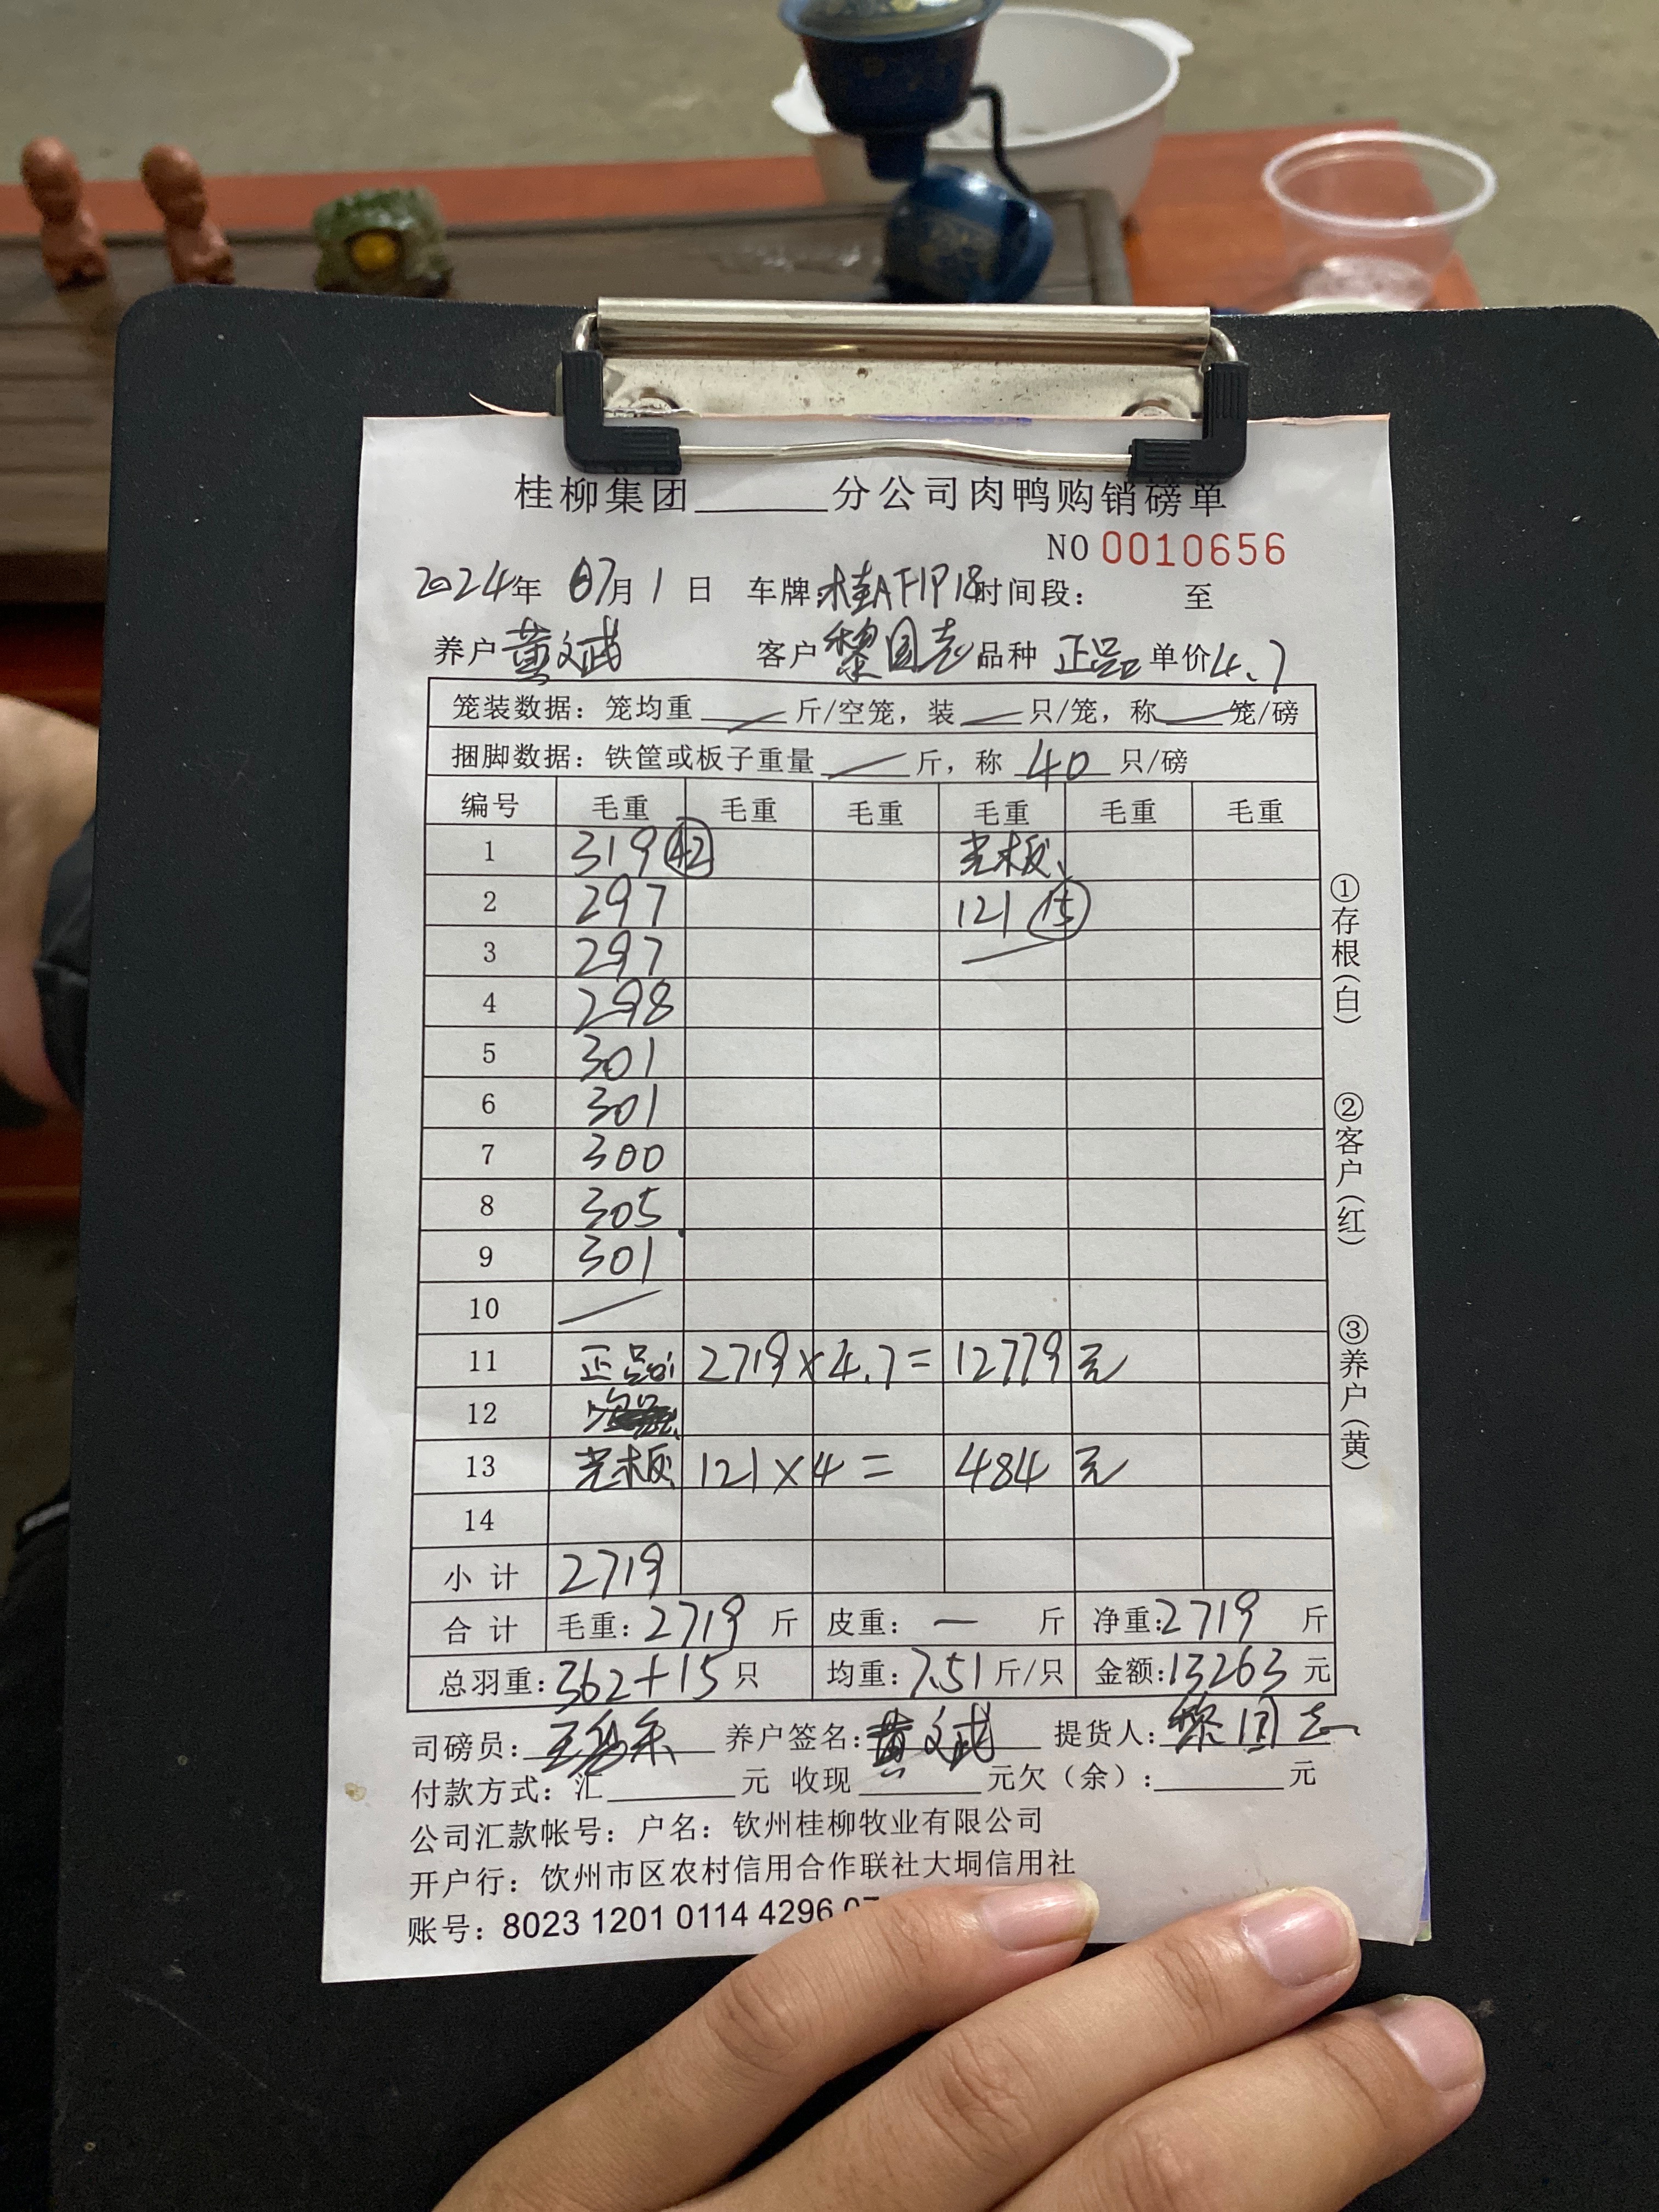 桂柳集团______分公司肉鸭购销磅单
NO 0010656
2024年 07月 1 日 车牌:桂AF1P18时间段: 至
养户 黄文武 客户 黎国志 品种 正品 单价 4.7
笼装数据: 笼均重 斤/空笼, 装 只/笼, 称 笼/磅
捆脚数据: 铁筐或板子重量 斤, 称 40 只/磅
编号 毛重 毛重 毛重 毛重 毛重 毛重
1 319 ㊷ 光板
2 297 121 ⑮
3 297
4 298
5 301
6 301
7 300
8 305
9 301
10
11 正品 2719×4.7= 12779 元
12
13 光板 121×4= 484 元
14
小计 2719
合计 毛重: 2719 斤 皮重: — 斤 净重: 2719 斤
总羽重: 362+15 只 均重: 7.51 斤/只 金额: 13263 元
司磅员: 养户签名: 黄文武 提货人: 黎国志
付款方式: 汇______元 收现______元欠(余):______元
公司汇款帐号: 户名: 钦州桂柳牧业有限公司
开户行: 钦州市区农村信用合作联社大垌信用社
账号: 8023 1201 0114 4296 07
①存根(白)
②客户(红)
③养户(黄)